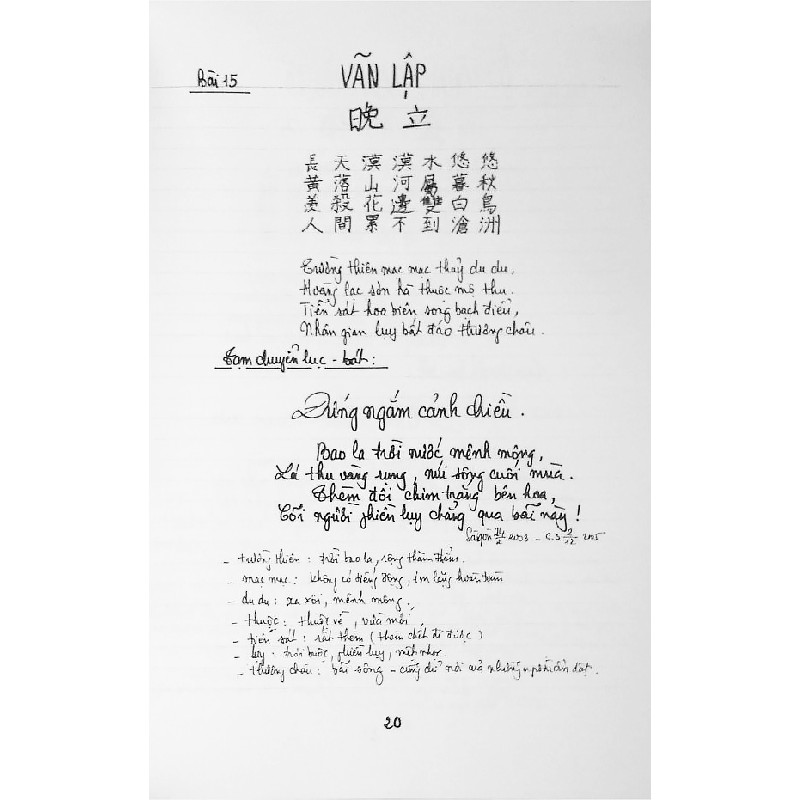 Bài 15
VÃN LẬP
晚 立
長 天 漠 漠 水 悠 悠
黃 落 山 河 屬 暮 秋
羨 殺 花 邊 雙 白 鳥
人 間 累 不 到 滄 洲
Trường thiên mạc mạc thủy du du.
Hoàng lạc sơn hà thuộc mộ thu.
Tiễn sát hoa biên song bạch điểu,
Nhân gian lụy bất đáo thương châu.
Tạm chuyển lục - bát :
Đứng ngắm cảnh chiều .
Bao la trời nước mênh mông,
Lá thu vàng rụng, núi sông cuối mùa.
Thèm đôi chim trắng bên hoa,
Cõi người phiền lụy chẳng qua bãi này !
Saigon 2003 - C.S 2/12 2005
- trường thiên : trời bao la, rộng thăm thẳm.
- mạc mạc : không có tiếng động, im lặng hoàn toàn
- du du : xa xôi, mênh mông,
- thuộc : thuộc về, vừa mới
- tiễn sát : rất thèm (thèm chết đi được)
- lụy : trói buộc, phiền lụy, mệt nhọc
- thương châu : bãi sông - cũng để nói về những người ẩn dật.
20